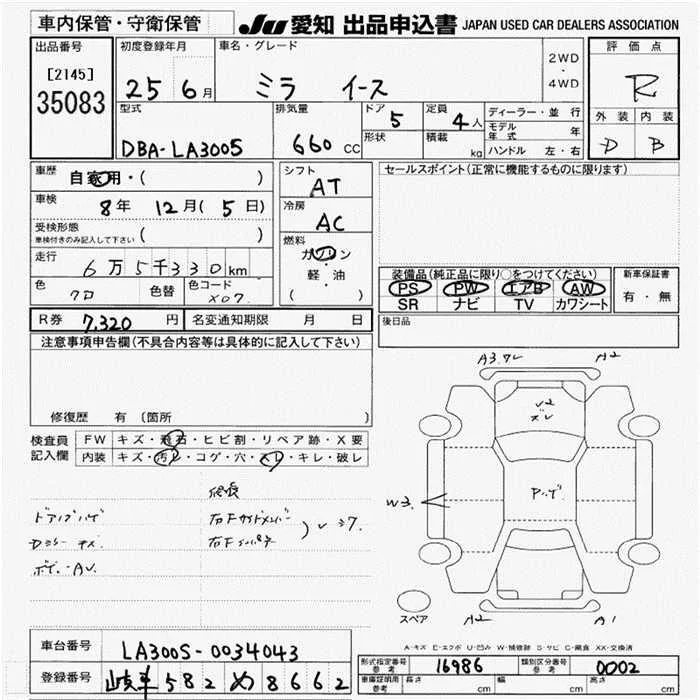 車内保管・守衛保管
JU 愛知 出品申込書 JAPAN USED CAR DEALERS ASSOCIATION
出品番号 初度登録年月 車名・グレード 評価点
[2145] 35083
25 6月 ミラ イース 2WD・4WD
R
外装 内装
D B
型式 排気量 ドア 5 定員 4人 ディーラー・並行
DBA-LA300S 660cc 形状 積載 kg モデル年式 年
ハンドル 左・右
車歴 自家用・( )
車検 8年 12月(5日)
受検形態 ( )
車検付きのみ記入して下さい
走行 6万5千330km
色 クロ 色替 色コード X07
シフト AT
冷房 AC
燃料 ガソリン・軽・油
( )
セールスポイント(正常に機能するものに限ります)
装備品(純正品に限り○をつけてください) 新車保証書
PS PW エアB AW 有・無
SR ナビ TV カワシート
R券 7,320円 名変通知期限 月 日
後日品
注意事項申告欄(不具合内容等は具体的に記入して下さい)
修復歴 有 〔箇所 〕
検査員記入欄 FW キズ・飛石・ヒビ割・リペア跡・X要
内装 キズ・汚レ・コゲ・穴・スレ・キレ・破レ
右Fサイドメンバー
A2
W3
A2 A1
スペア
A-キズ E-エクボ U-凹み W-補修跡 S-サビ C-腐食 XX-交換済
車台番号 LA300S-0034043
登録番号 岐阜 582 め 8662
型式指定番号 参考 16986 類別区分番号 参考 0002
車庫証明用 参考 長さ cm 幅 cm 高さ cm